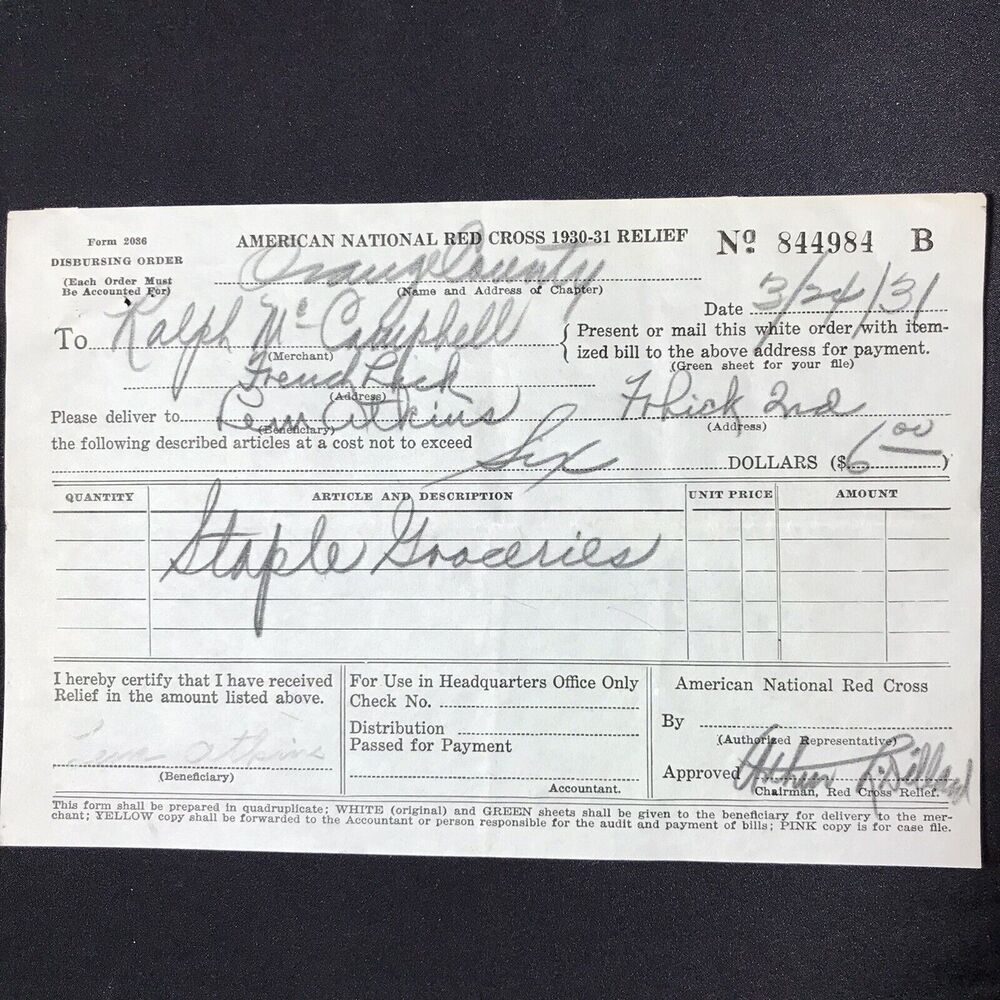 Form 2036
DISBURSING ORDER
(Each Order Must
Be Accounted For)
AMERICAN NATIONAL RED CROSS 1930-31 RELIEF
Nº 844984 B
Orange County
(Name and Address of Chapter)
Date 3/24/31
To Ralph Mc Campbell
(Merchant)
French Lick
(Address)
Present or mail this white order with item-
ized bill to the above address for payment.
(Green sheet for your file)
Please deliver to Lem Atkins F Lick 2nd
(Beneficiary) (Address)
the following described articles at a cost not to exceed
Six DOLLARS ($6.00)
QUANTITY ARTICLE AND DESCRIPTION UNIT PRICE AMOUNT
Staple Groceries
I hereby certify that I have received
Relief in the amount listed above.
Lem Atkins
(Beneficiary)
For Use in Headquarters Office Only
Check No.
Distribution
Passed for Payment
Accountant.
American National Red Cross
By
(Authorized Representative)
Approved Arthur Dillard
Chairman, Red Cross Relief.
This form shall be prepared in quadruplicate; WHITE (original) and GREEN sheets shall be given to the beneficiary for delivery to the mer-
chant; YELLOW copy shall be forwarded to the Accountant or person responsible for the audit and payment of bills; PINK copy is for case file.